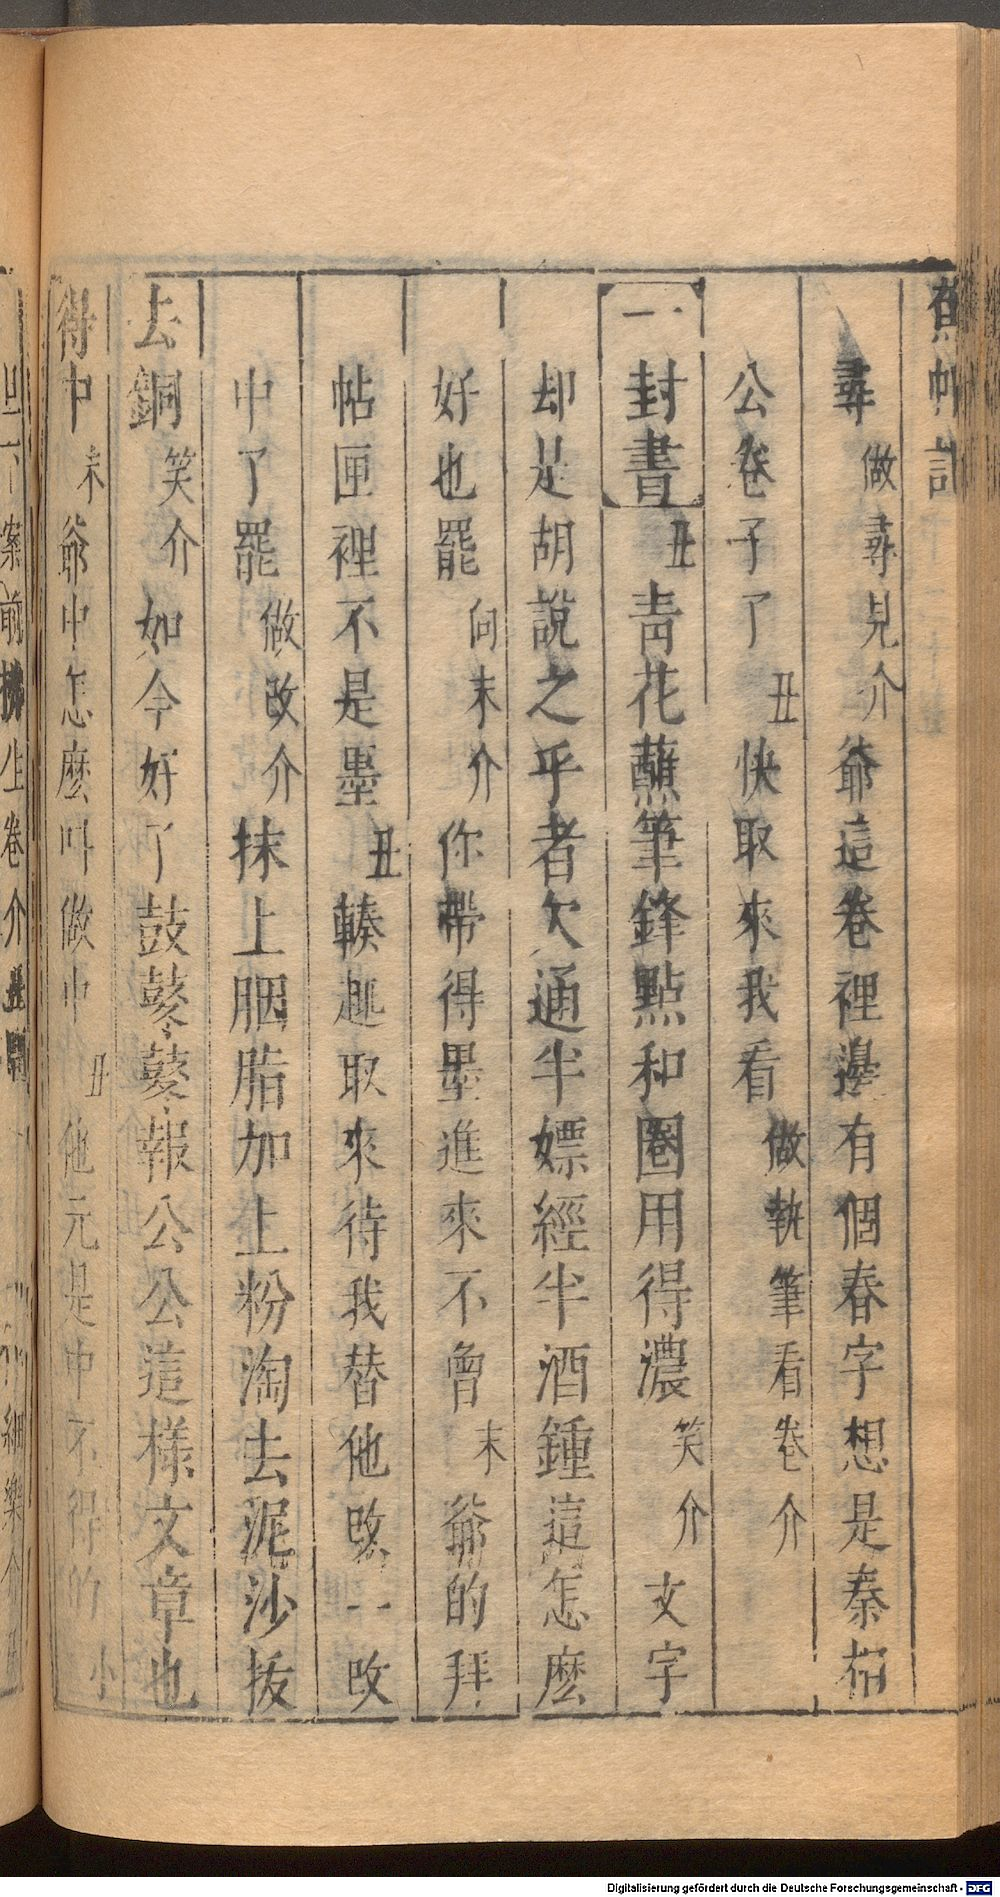 蕉帕記
尋做尋見介爺這卷裡邊有個春字想是秦相
公卷子了丑快取來我看做執筆看卷介
一封書丑青花蘸筆鋒點和圈用得濃笑介文字
却是胡說之乎者欠通半嫖經半酒鍾這怎麽
好也罷向末介你帶得墨進來不曾末爺的拜
帖匣裡不是墨丑輳趣取來待我替他改一改
中了罷做改介抹上胭脂加上粉淘去泥沙拔
去銅笑介如今好了鼓鼕鼕報公公這樣文章也
得中末爺中怎麽叫做中丑他元是中不得的小
Digitalisierung gefördert durch die Deutsche Forschungsgemeinschaft - DFG